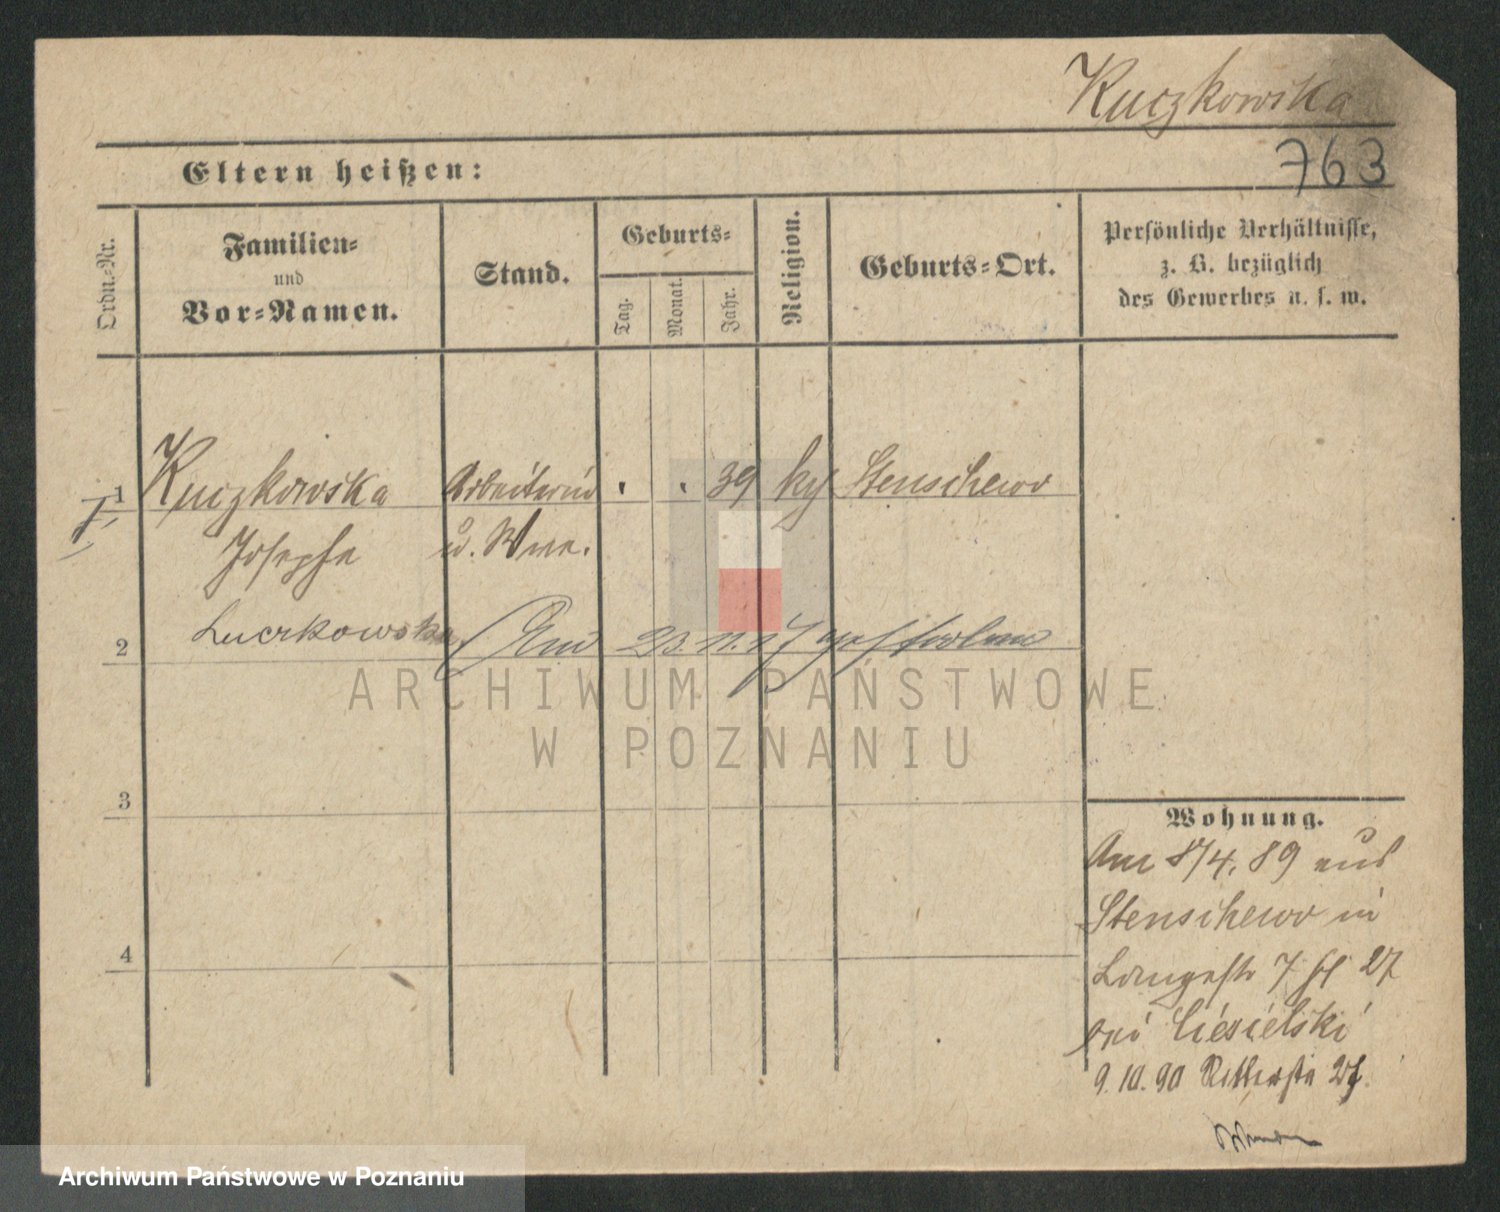 Kuczkowska
763
Eltern heißen:
Ordn.-Nr.
Familien-
und
Vor-Namen.
Stand.
Geburts-
Tag.
Monat.
Jahr.
Religion.
Geburts-Ort.
Persönliche Verhältnisse,
z. B. bezüglich
des Gewerbes u. s. w.
1 Kuczkowska Arbeiterin . . 39 Stenschewo
Josepha u. Wwe.
2
gestorben
ARCHIWUM PAŃSTWOWE
W POZNANIU
3
4
Wohnung.
Am 8/4. 89 aus
Stenschewo in
Langestr 7 27
bei Ciesielski
9.10.90 Ritterstr
Archiwum Państwowe w Poznaniu